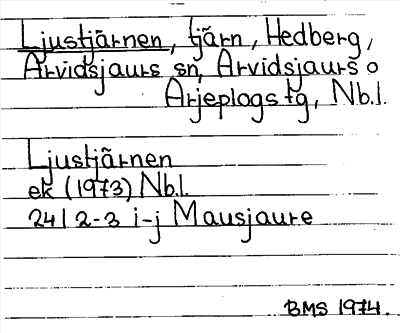 Ljustjärnen, tjärn, Hedberg,
Arvidsjaurs sn, Arvidsjaurs o
Arjeplogs tg, Nb.l.
Ljustjärnen
ek (1973) Nb.l.
24I 2-3 i-j Mausjaure
BMS 1974.